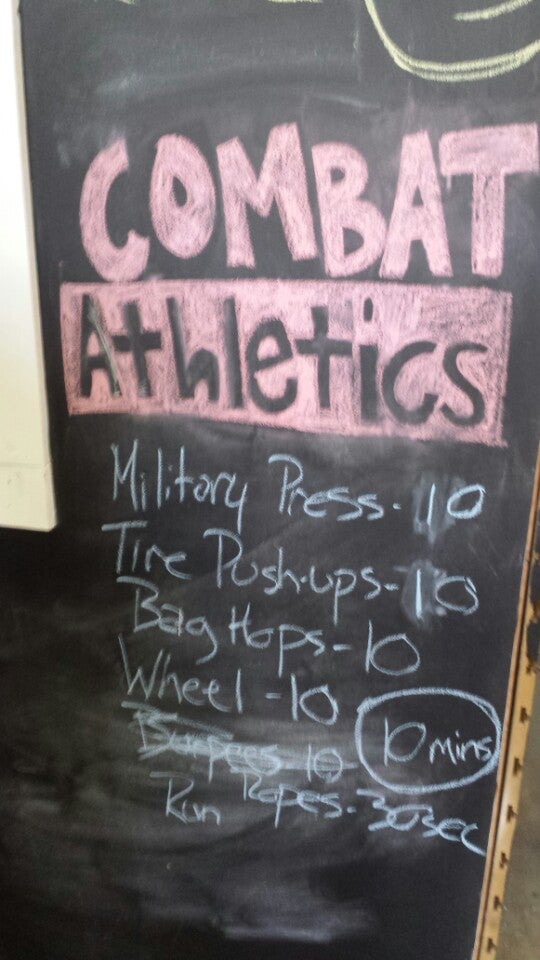 COMBAT
Athletics
Military Press - 10
Tire Push-ups - 10
Bag Hops - 10
Wheel - 10
Burpees - 10
10 mins
Ropes - 30sec
Run